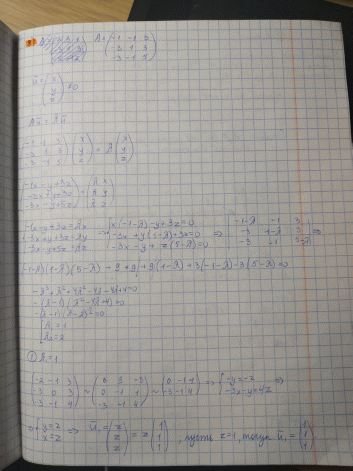 A = (-1 -1 3
-3 1 3
-3 -1 5)
ū = (x
y
z) ≠ 0
Aū = λū
(-1 -1 3
-3 1 3
-3 -1 5) (x
y
z) = λ (x
y
z)
(-1x-y+3z
-3x+y+3z
-3x-y+5z) = (λx
λy
λz)
{-1x-y+3z=λx
-3x+y+3z=λy
-3x-y+5z=λz
→ {x(-1-λ)-y+3z=0
-3x+y(1-λ)+3z=0
-3x-y+z(5-λ)=0
⇒ |-1-λ -1 3
-3 1-λ 3
-3 -1 5-λ| ⇒
(-1-λ)(1-λ)(5-λ)+9+9+9(1-λ)+3(-1-λ)-3(5-λ)=0
-(λ-1)(λ²-4λ+4)=0
-(λ-1)(λ-2)²=0
[λ₁=1
λ₂=2
① λ₁=1
(-2 -1 3
-3 0 3
-3 -1 4) ~ (0 3 -3
0 -1 1
-3 -1 4) ~ (0 -1 1
-3 -1 4) ⇒ {-y=-z
-3x-y=4z ⇒
⇒ {y=z
x=z ⇒ ū₁ = (z
z
z) = z (1
1
1), пусть z=1, тогда ū₁ = (1
1
1)